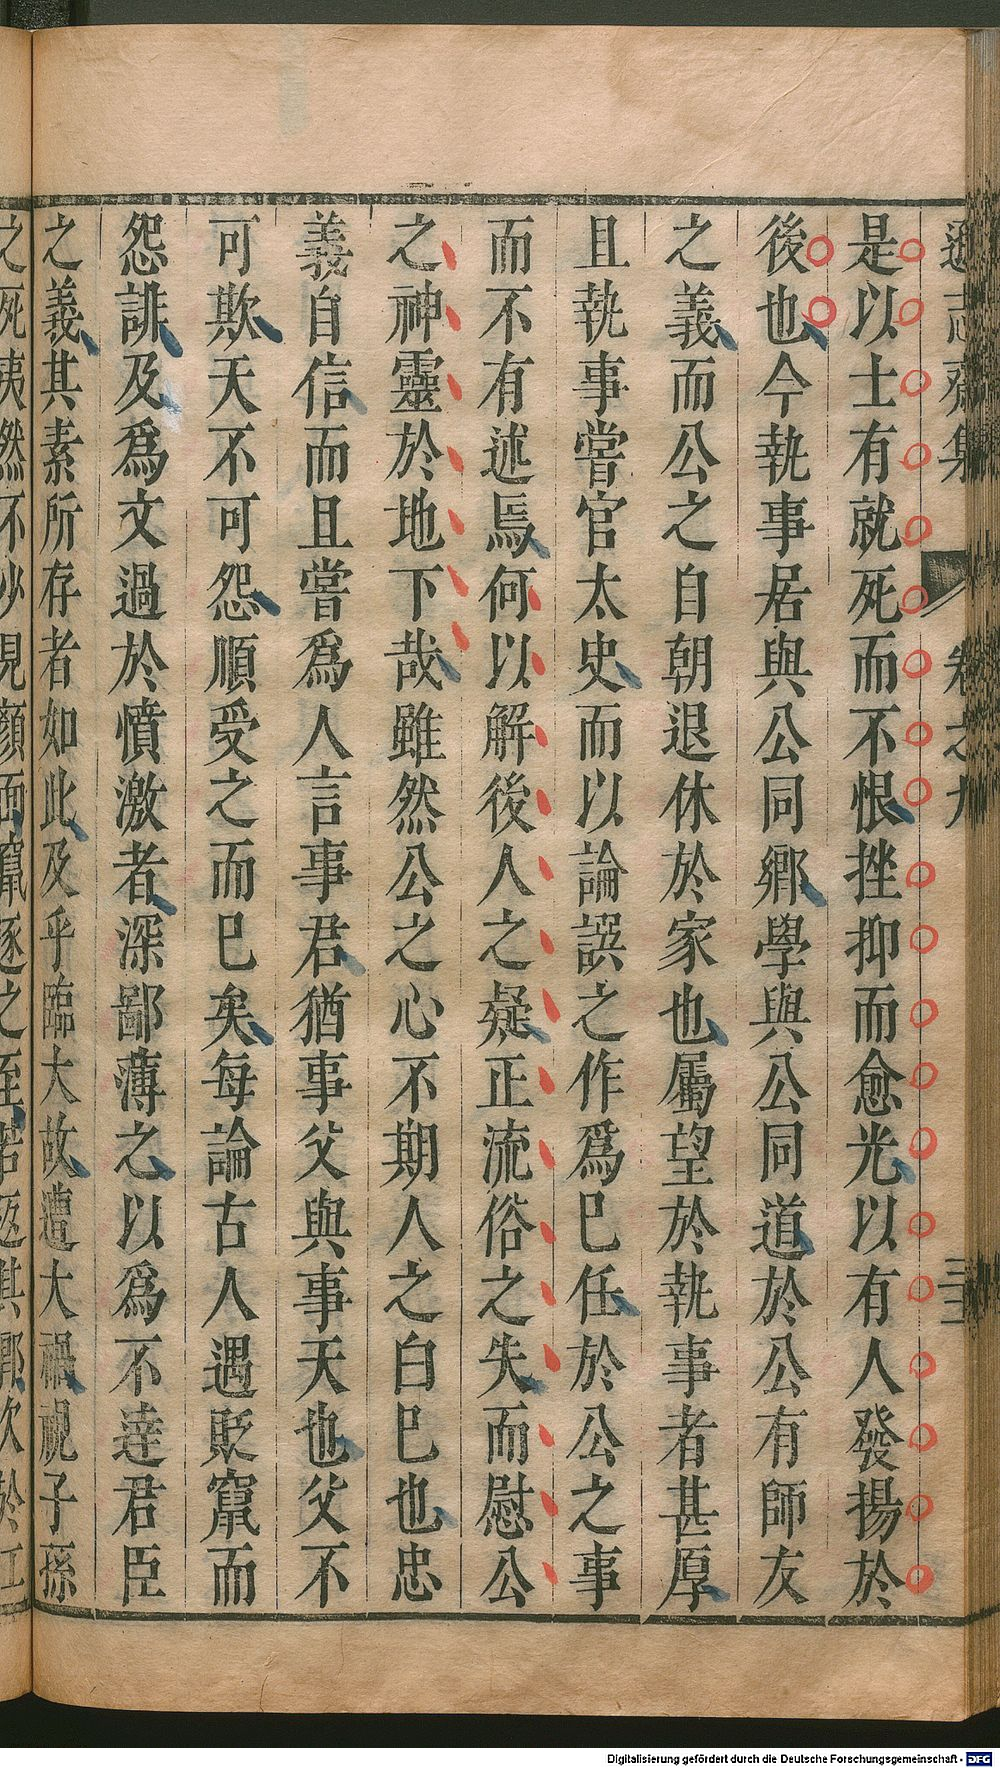 遜志齋集 卷之九 三二
是以士有就死而不恨挫抑而愈光以有人發揚於
後也今執事居與公同鄉學與公同道於公有師友
之義而公之自朝退休於家也屬望於執事者甚厚
且執事嘗官太史而以論譔之作爲巳任於公之事
而不有述焉何以解後人之疑正流俗之失而慰公
之神靈於地下哉雖然公之心不期人之白巳也忠
義自信而且嘗爲人言事君猶事父與事天也父不
可欺天不可怨順受之而巳矣每論古人遇貶竄而
怨誹及爲文過於憤激者深鄙薄之以爲不達君臣
之義其素所存者如此及乎臨大故遭大禍視子孫
之死夷然不少見顏面竄逐之至若返其鄉次於江
Digitalisierung gefördert durch die Deutsche Forschungsgemeinschaft - DFG